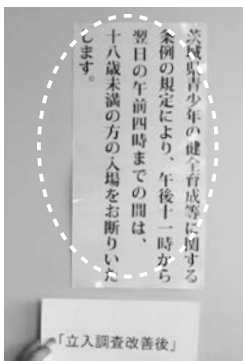 茨城県青少年の健全育成等に関する
条例の規定により、午後十一時から
翌日の午前四時までの間は、
十八歳未満の方の入場をお断りいた
します。
「立入調査改善後」